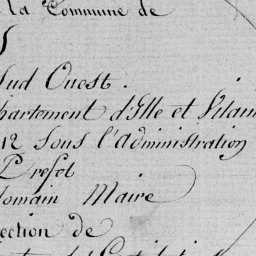 la Commune de
Sud Ouest.
partement d'Ille et Vilain
12 Sous l'administration
Prefet
omain Maire
ection de